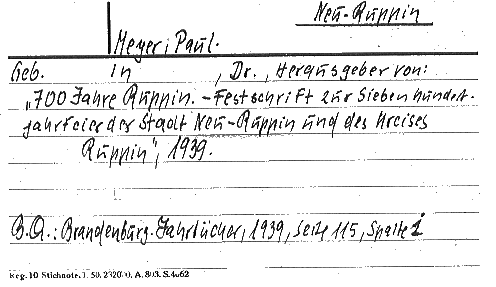 Neu-Ruppin
Meyer, Paul.
Geb. in , Dr., Herausgeber von:
„700 Jahre Ruppin. - Festschrift zur Siebenhundert-
jahrfeier der Stadt Neu-Ruppin und des Kreises
Ruppin", 1939.
B.Q.: Brandenburg. Jahrbücher, 1939, Seite 115, Spalte 1
Reg. 10 Stichnote. 1. 50. A. 803. S. 4062